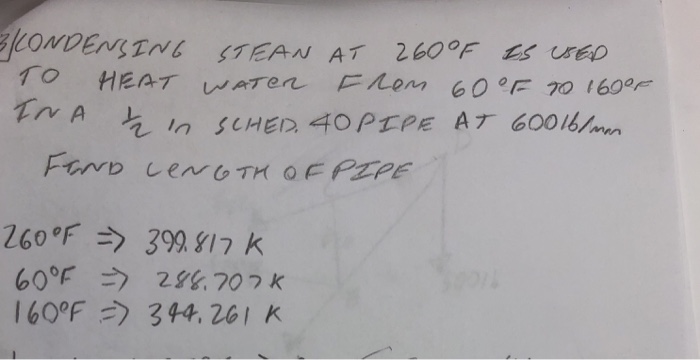 3/ CONDENSING STEAN AT 260°F IS USED
TO HEAT WATER FROM 60°F TO 160°F
IN A 1/2 in SCHED. 40 PIPE AT 600 lb/min
FIND LENGTH OF PIPE
260°F => 399.817 K
60°F => 288.707 K
160°F => 344.261 K